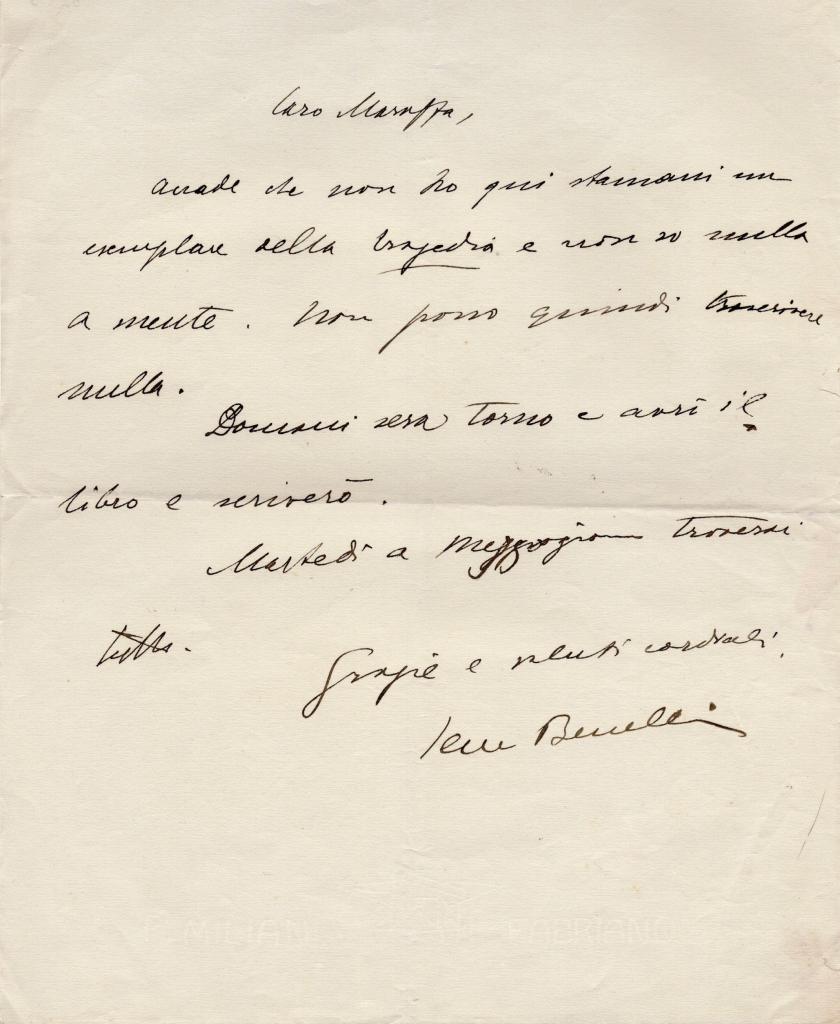 Caro Maraffa,
accade che non ho qui stamani un
esemplare della tragedia e non so nulla
a mente. Non posso quindi trascrivere
nulla.
Domani sera torno e avrò il
libro e scriverò.
Martedì a mezzogiorno troverai
tutto.
Grazie e saluti cordiali.
Sem Benelli
MILIANI FABRIANO